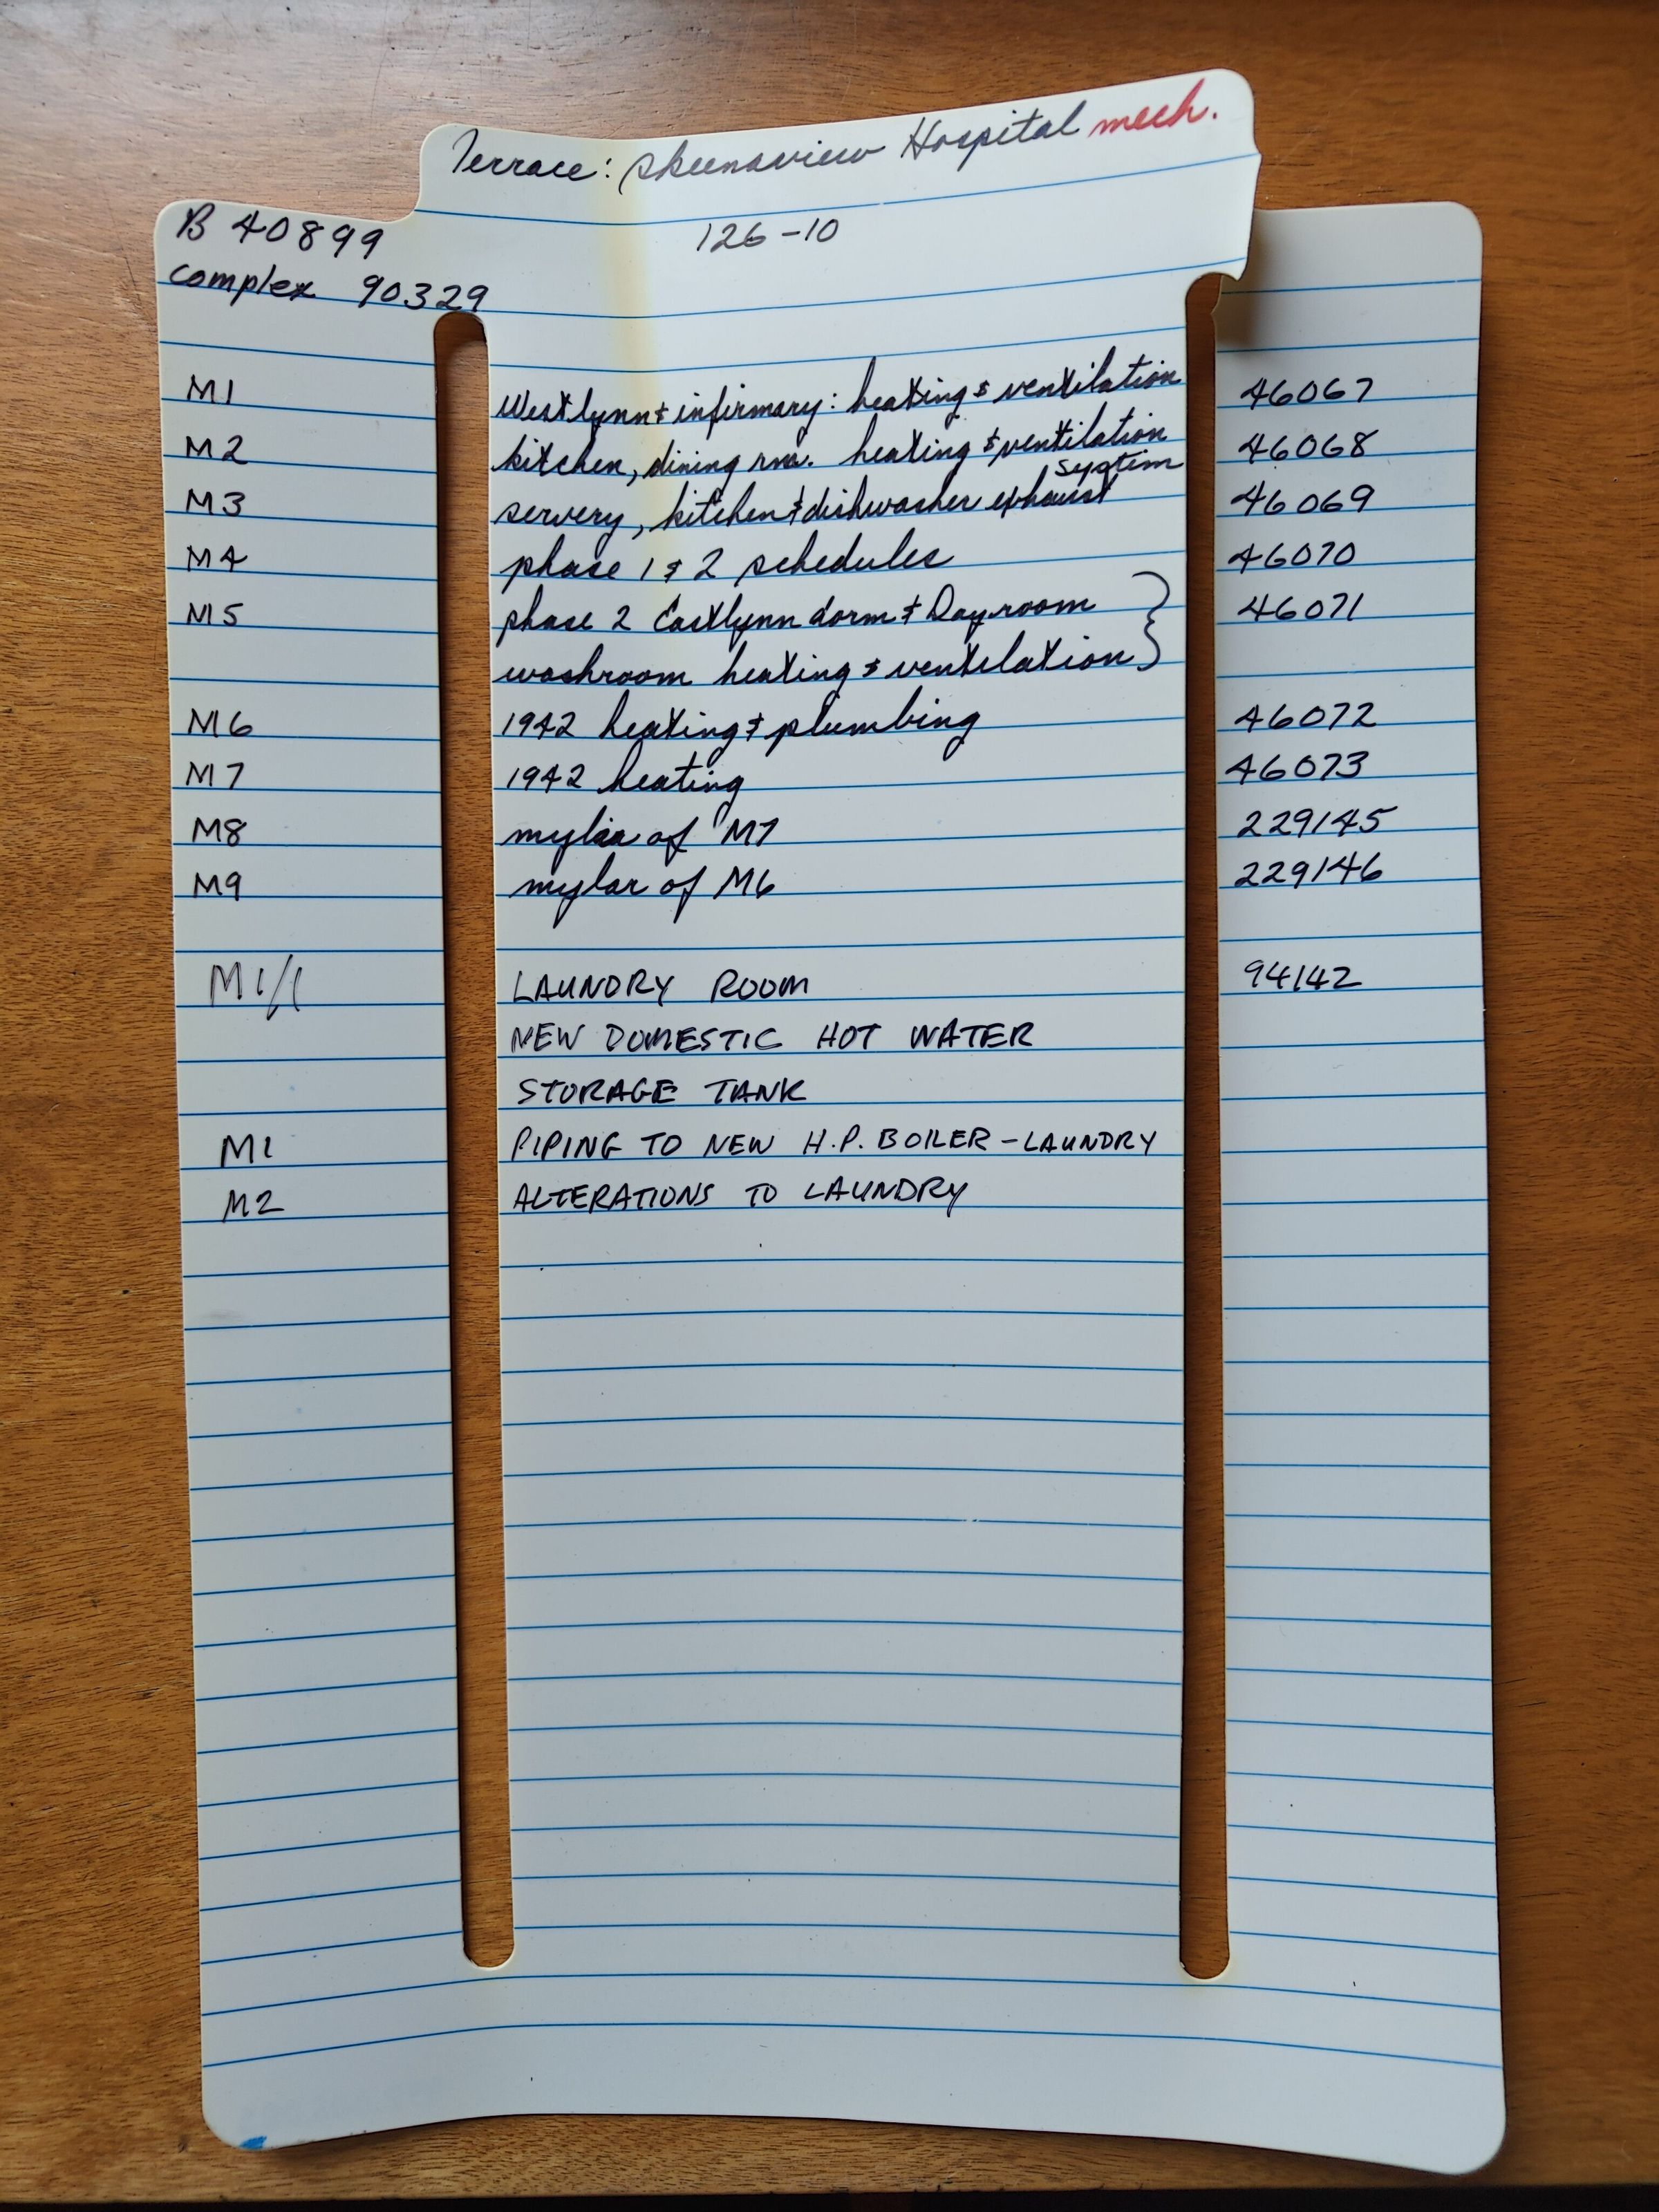 Terrace: Skeenaview Hospital mech.
126-10
B 40899
complex 90329
M1 Westlynn & infirmary: heating & ventilation 46067
M2 kitchen, dining rm. heating & ventilation 46068
M3 servery, kitchen & dishwasher exhaust system 46069
M4 phase 1 & 2 schedules 46070
M5 phase 2 Eastlynn dorm & Dayroom 46071
washroom heating & ventilation
M6 1942 heating & plumbing 46072
M7 1942 heating 46073
M8 mylar of M7 229145
M9 mylar of M6 229146
M1/1 LAUNDRY ROOM 94142
NEW DOMESTIC HOT WATER
STORAGE TANK
M1 PIPING TO NEW H.P. BOILER - LAUNDRY
M2 ALTERATIONS TO LAUNDRY